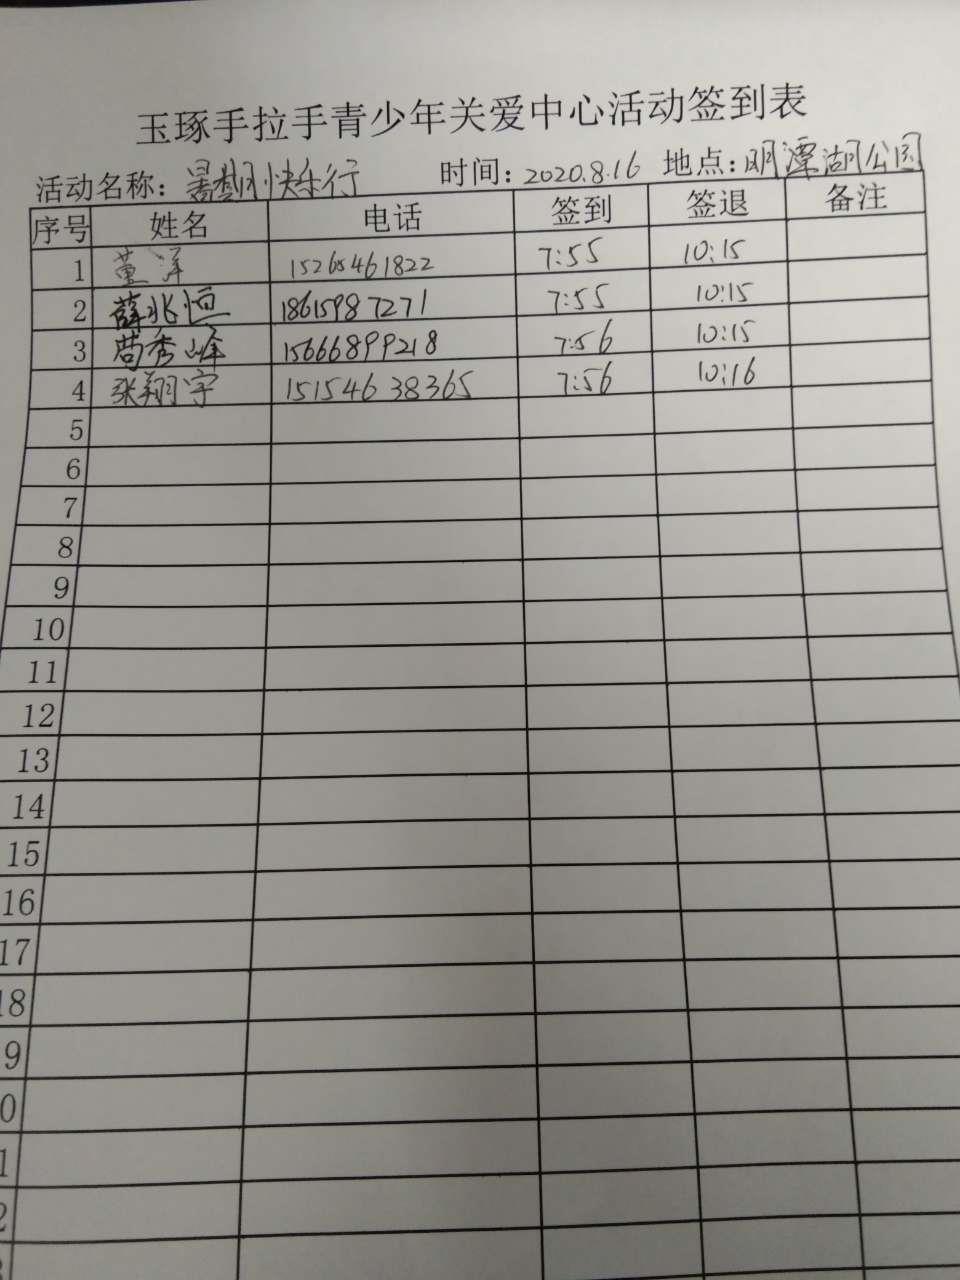 玉琢手拉手青少年关爱中心活动签到表
活动名称：暑期快乐行 时间：2020.8.16 地点：明潭湖公园
序号 姓名 电话 签到 签退 备注
1 董洋 15265461822 7:55 10:15
2 薛兆恒 18615987271 7:55 10:15
3 苟秀峰 15666899218 7:56 10:15
4 张翔宇 15154638365 7:56 10:16
5
6
7
8
9
10
11
12
13
14
15
16
17
18
9
0
1
2